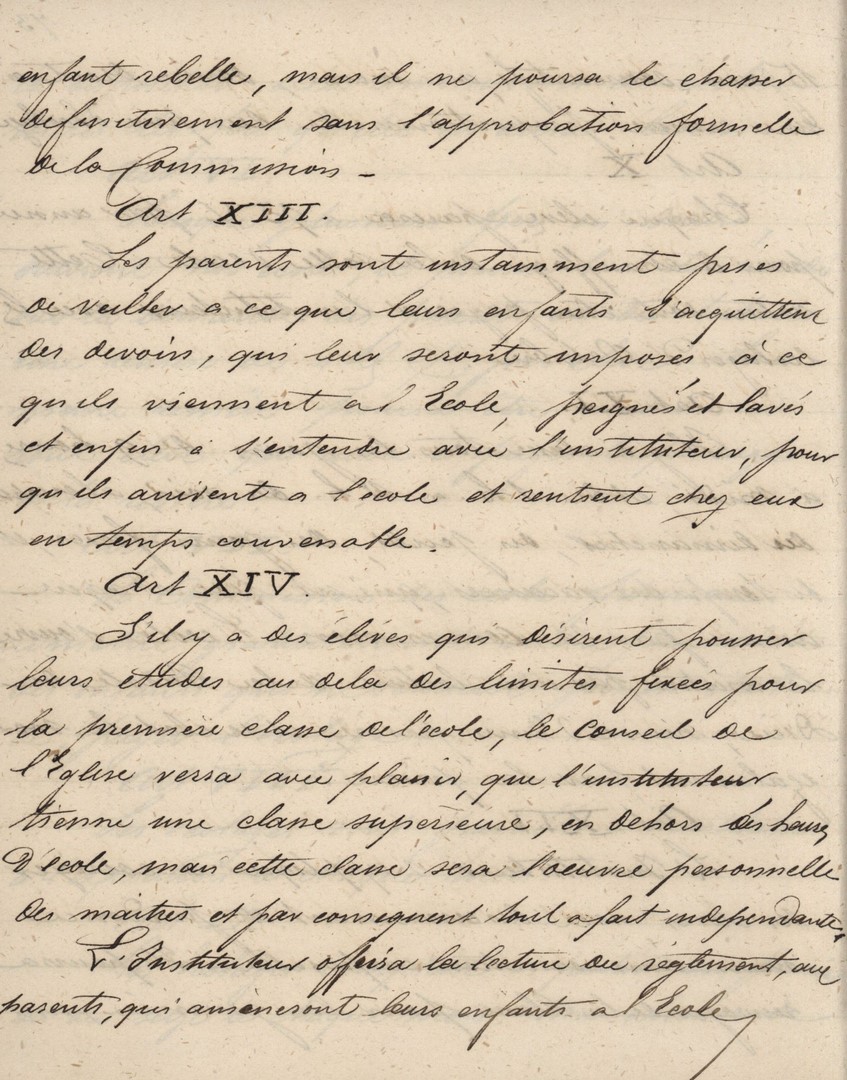 enfant rebelle, mais il ne pourra le chasser
définitivement sans l'approbation formelle
de la Commission -
Art XIII.
Les parents sont instamment priés
de veiller a ce que leurs enfants s'acquittent
des devoirs, qui leur seront imposés à ce
qu'ils viennent a l'Ecole, peignés et lavés
et enfin à s'entendre avec l'instituteur, pour
qu'ils arrivent a l'ecole et rentrent chez eux
en temps convenable.
Art XIV.
S'il y a des élèves qui désirent pousser
leurs etudes au dela des limites fixées pour
la premiere classe de l'école, le conseil de
l'Eglise verra avec plaisir, que l'instituteur
tienne une classe superieure, en dehors des heures
d'école, mais cette classe sera l'oeuvre personnelle
des maitres et par consequent tout a fait independante.
L'Instituteur offrira la lecture du règlement, aux
parents, qui amèneront leurs enfants a l'Ecole